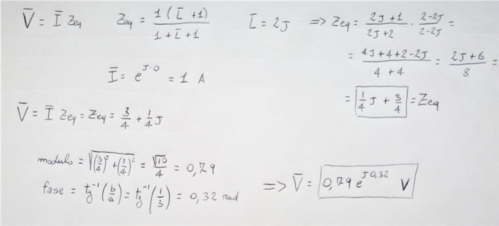 V̄ = Ī Zeq    Zeq = 1(L̄ + 1) / 1 + L̄ + 1    L̄ = 2J ⇒ Zeq = 2J+1 / 2J+2 · 2-2J / 2-2J =
= 4J+4+2-2J / 4+4 = 2J+6 / 8 =
Ī = e^J·0 = 1 A
= 1/4 J + 3/4 = Zeq
V̄ = Ī Zeq = Zeq = 3/4 + 1/4 J
modulo = √(3/4)² + (1/4)² = √10 / 4 = 0,79
fase = tg⁻¹(b/a) = tg⁻¹(1/3) = 0,32 rad    ⇒ V̄ = 0,79 e^J0,32 V